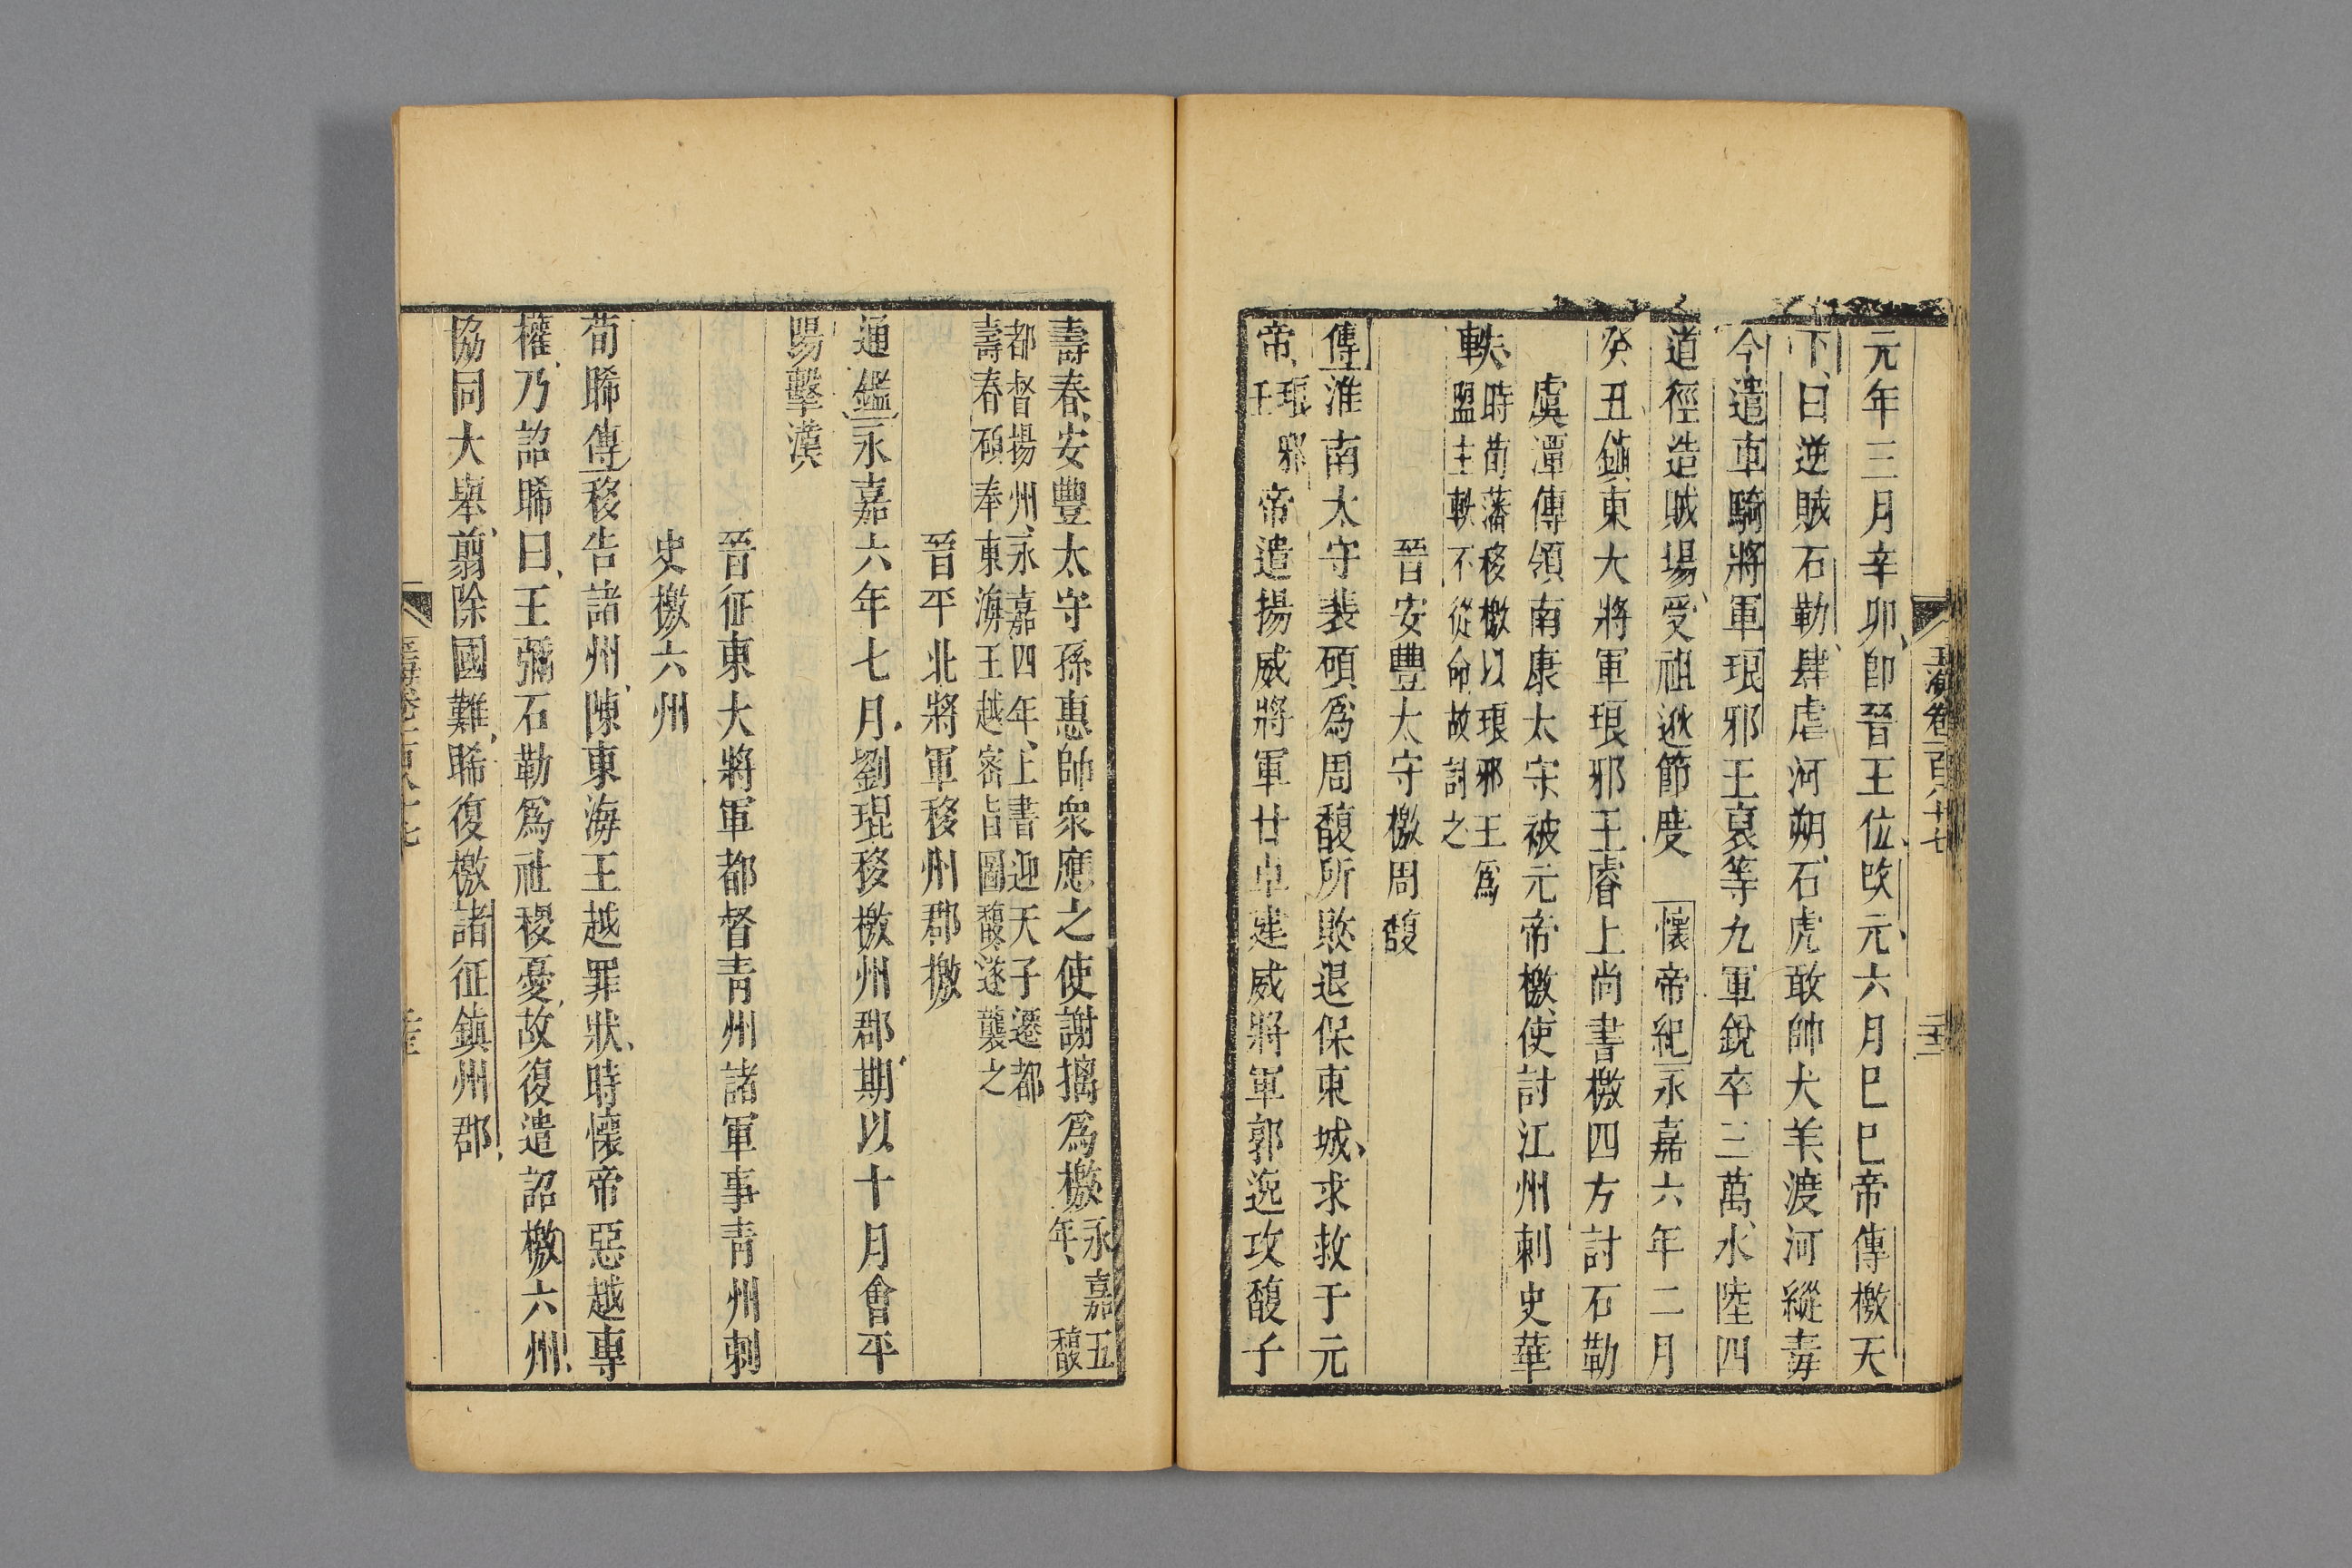 玉海卷一百八十七
元年三月辛卯卽晉王位改元六月己巳帝傳檄天
下曰逆賊石勒肆虐河朔石虎敢帥犬羊渡河縱毒
今遣車騎將軍琅邪王裒等九軍銳卒三萬水陸四
道徑造賊場受祖逖節度 懷帝紀永嘉六年二月
癸丑鎮東大將軍琅邪王睿上尚書檄四方討石勒
虞潭傳領南康太守被元帝檄使討江州刺史華
軼時荀藩移檄以琅邪王爲
盟主軼不從命故討之
晉安豐太守檄周馥
傳淮南太守裴碩爲周馥所敗退保東城求救于元
帝琅邪
王 帝遣揚威將軍甘卓建威將軍郭逸攻馥于
壽春安豐太守孫惠帥衆應之使謝摛爲檄永嘉五
年馥
都督揚州永嘉四年上書迎天子遷都
壽春碩奉東海王越密旨圖馥遂襲之
晉平北將軍移州郡檄
通鑑永嘉六年七月劉琨移檄州郡期以十月會平
陽擊漢
晉征東大將軍都督青州諸軍事青州刺
史檄六州
荀晞傳移告諸州陳東海王越罪狀時懷帝惡越專
權乃詔晞曰王彌石勒爲社稷憂故復遣詔檄六州
協同大舉翦除國難晞復檄諸征鎮州郡